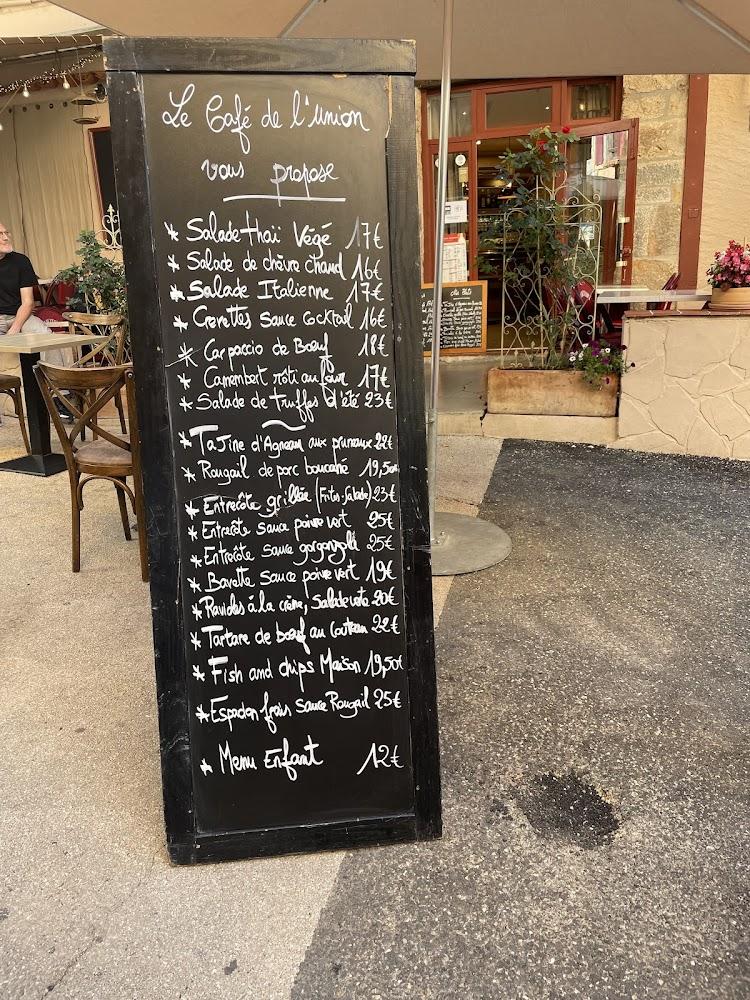 Le Café de l'union
vous propose
* Salade thaï Végé 17€
* Salade de chèvre chaud 16€
* Salade Italienne 17€
* Crevettes Sauce Cocktail 16€
* Carpaccio de Bœuf 18€
* Camembert rôti au four 17€
* Salade de truffes d'été 23€
* Tajine d'Agneau aux pruneaux 22€
* Rougail de porc boucané 19,50€
* Entrecôte grillée (Frites-Salade) 23€
* Entrecôte sauce poivre vert 25€
* Entrecôte sauce gorgonzola 25€
* Bavette sauce poivre vert 19€
* Ravioles à la crème, Salade verte 20€
* Tartare de bœuf au Couteau 22€
* Fish and chips Maison 19,50€
* Espadon frais sauce Rougail 25€
* Menu Enfant 12€